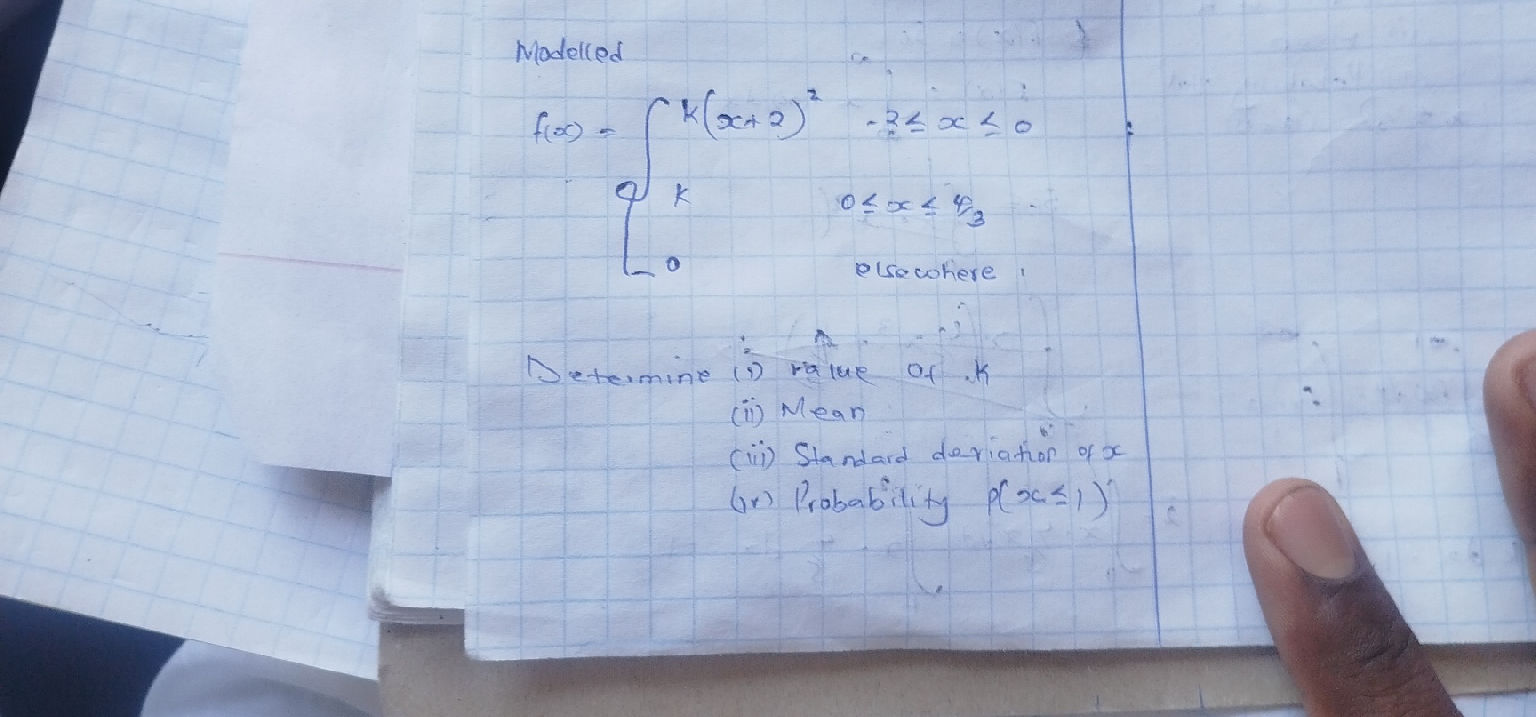 Modelled
f(x) = { k(x+2)² -2 ≤ x ≤ 0
k 0 ≤ x ≤ 4/3
0 elsewhere
Determine (i) value of k
(ii) Mean
(iii) Standard deviation of x
(iv) Probability P(x ≤ 1)